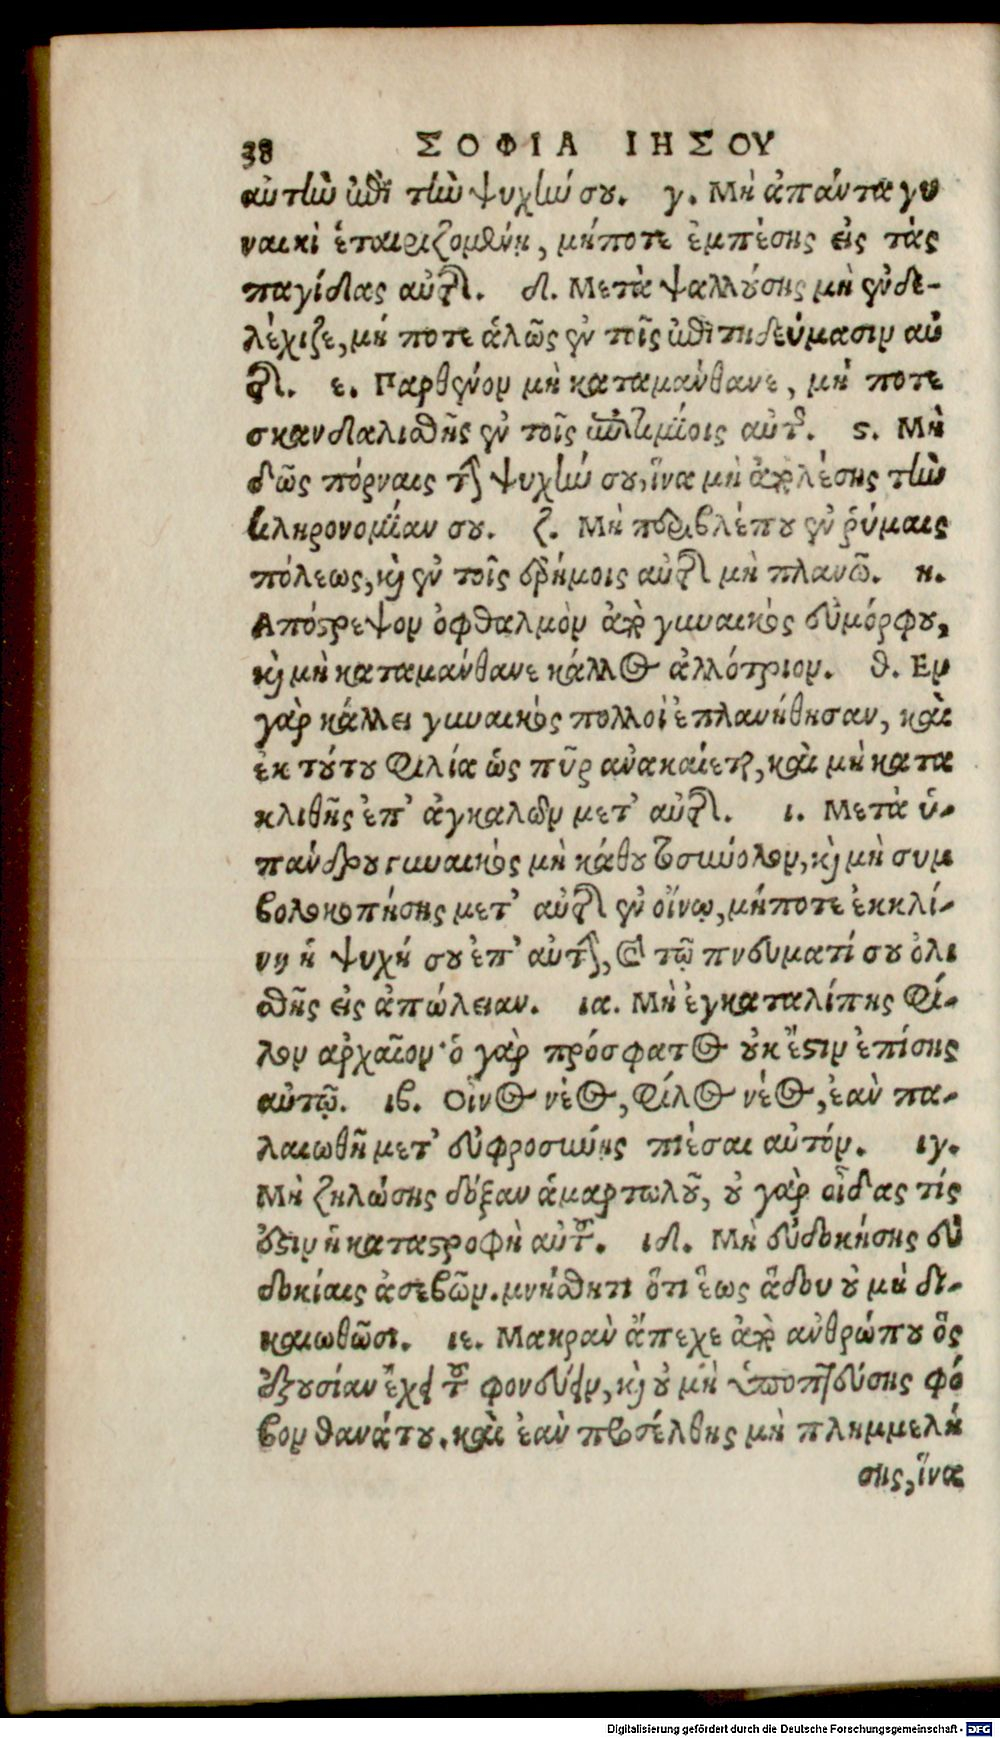 38 ΣΟΦΙΑ ΙΗΣΟΥ
αὐτὴν ἐπὶ τὴν ψυχήν σου. γ. Μὴ ἀπάντα γυ
ναικὶ ἑταιριζομένῃ, μήποτε ἐμπέσης εἰς τὰς
παγίδας αὐτῆς. δ. Μετὰ ψαλλούσης μὴ ἐνδε-
λέχιζε, μή ποτε ἁλῶς ἐν τοῖς ἐπιτηδεύμασιν αὐ
τῆς. ε. Παρθένον μὴ καταμάνθανε, μή ποτε
σκανδαλισθῇς ἐν τοῖς ἐπιτιμίοις αὐτῆς. ς. Μὴ
δῶς πόρναις τὴν ψυχήν σου, ἵνα μὴ ἀπολέσης τὴν
κληρονομίαν σου. ζ. Μὴ περιβλέπου ἐν ῥύμαις
πόλεως, καὶ ἐν τοῖς ἐρήμοις αὐτῆς μὴ πλανῶ. η.
Απόστρεψον ὀφθαλμὸν ἀπὸ γυναικὸς εὐμόρφου,
καὶ μὴ καταμάνθανε κάλλος ἀλλότριον. θ. Εν
γὰρ κάλλει γυναικὸς πολλοὶ ἐπλανήθησαν, καὶ
ἐκ τούτου φιλία ὡς πῦρ ἀνακαίεται, καὶ μὴ κατα
κλιθῇς ἐπ' ἀγκαλῶν μετ' αὐτῆς. ι. Μετὰ ὑ-
πάνδρου γυναικὸς μὴ κάθου τοσύνολον, καὶ μὴ συμ
βολοκοπήσης μετ' αὐτῆς ἐν οἴνῳ, μήποτε ἐκκλί-
νῃ ἡ ψυχή σου ἐπ' αὐτὴν, καὶ τῷ πνεύματί σου ὀλι
σθῇς εἰς ἀπώλειαν. ια. Μὴ ἐγκαταλίπης φί-
λον ἀρχαῖον· ὁ γὰρ πρόσφατος οὐκ ἔστιν ἐπίσης
αὐτῷ. ιβ. Οἶνος νέος, φίλος νέος, ἐὰν πα-
λαιωθῇ μετ' εὐφροσύνης πιέσαι αὐτόν. ιγ.
Μὴ ζηλώσης δόξαν ἁμαρτωλοῦ, οὐ γὰρ οἶδας τίς
ἔστιν ἡ καταστροφὴ αὐτοῦ. ιδ. Μὴ εὐδοκήσης εὐ
δοκίαις ἀσεβῶν. μνήσθητι ὅτι ἕως ᾅδου οὐ μὴ δι-
καιωθῶσι. ιε. Μακρὰν ἄπεχε ἀπὸ ἀνθρώπου ὃς
ἐξουσίαν ἔχει τοῦ φονεύειν, καὶ οὐ μὴ ὑποπτεύσης φό
βον θανάτου. καὶ ἐὰν προσέλθης μὴ πλημμελή
σης, ἵνα
Digitalisierung gefördert durch die Deutsche Forschungsgemeinschaft - DFG